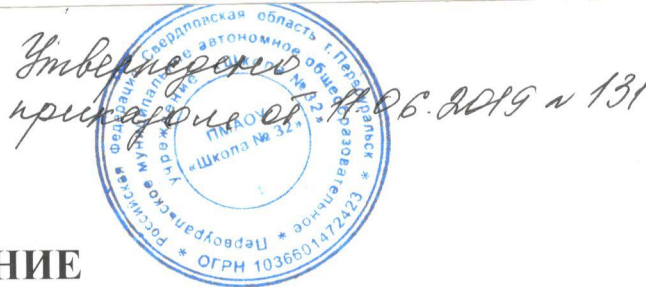 Утверждено
приказом от 11.06.2019 № 131
Российская Федерация Свердловская область г. Первоуральск *
Первоуральское муниципальное автономное общеобразовательное учреждение «Школа № 32» *
* ОГРН 1036601472423 *
ПМАОУ
«Школа № 32»
1
НИЕ